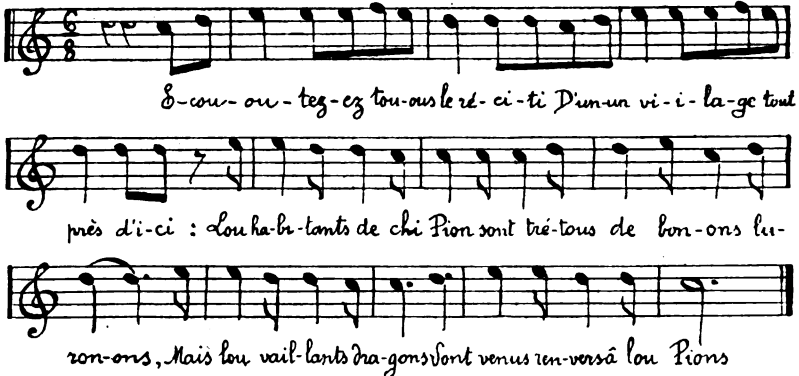 6
8
E-cou-ou-tez-ez tou-ous le ré-ci-ti D'un-un vi-i-la-ge tout
près d'i-ci : Lou ha-bi-tants de chi Pion sont tré-tous de bon-ons lu-
ron-ons, Mais lou vail-lants dra-gons Sont venus ren-versâ lou Pions